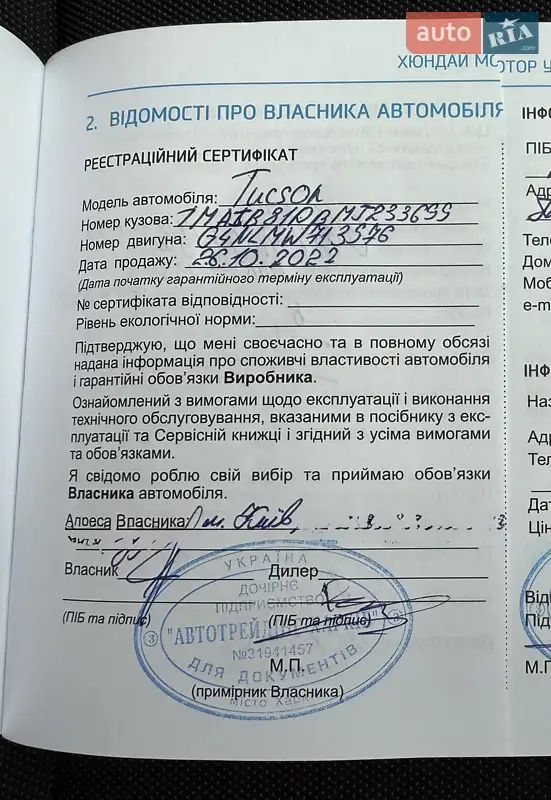 auto RIA .com
ХЮНДАЙ МО ОТОР У
2. ВІДОМОСТІ ПРО ВЛАСНИКА АВТОМОБІЛЯ
РЕЄСТРАЦІЙНИЙ СЕРТИФІКАТ
Модель автомобіля: Tucson
Номер кузова:
Номер двигуна:
Дата продажу: 26.10.2022
(Дата початку гарантійного терміну експлуатації)
№ сертифіката відповідності:
Рівень екологічної норми:
Підтверджую, що мені своєчасно та в повному обсязі
надана інформація про споживчі властивості автомобіля
і гарантійні обов'язки Виробника.
Ознайомлений з вимогами щодо експлуатації і виконання
технічного обслуговування, вказаними в посібнику з екс-
плуатації та Сервісній книжці і згідний з усіма вимогами
та обов'язками.
Я свідомо роблю свій вибір та приймаю обов'язки
Власника автомобіля.
Адреса Власника м. Київ,
Власник Дилер
(ПІБ та підпис) (ПІБ та підпис)
УКРАЇНА
ДОЧІРНЄ
ПІДПРИЄМСТВО
№31941457
ДЛЯ ДОКУМЕНТІВ
М.П.
(примірник Власника)
ІНФО
ПІБ
Адр
Теле
Дом
Моб
e-m
ІНФ
Наз
Адр
Тел
Дат
Цін
Від
Під
М.П